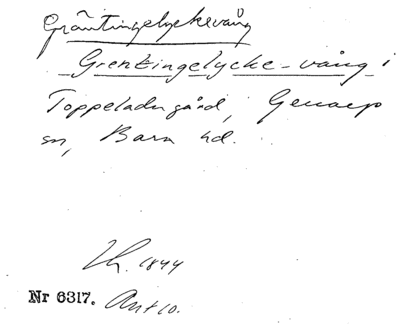 Gräntingelyckevång
Grentingelycke-vång i
Toppeladugård, Genarp
sn, Bara hd.
Lh. 1844
Nr 6317. Ant 10.